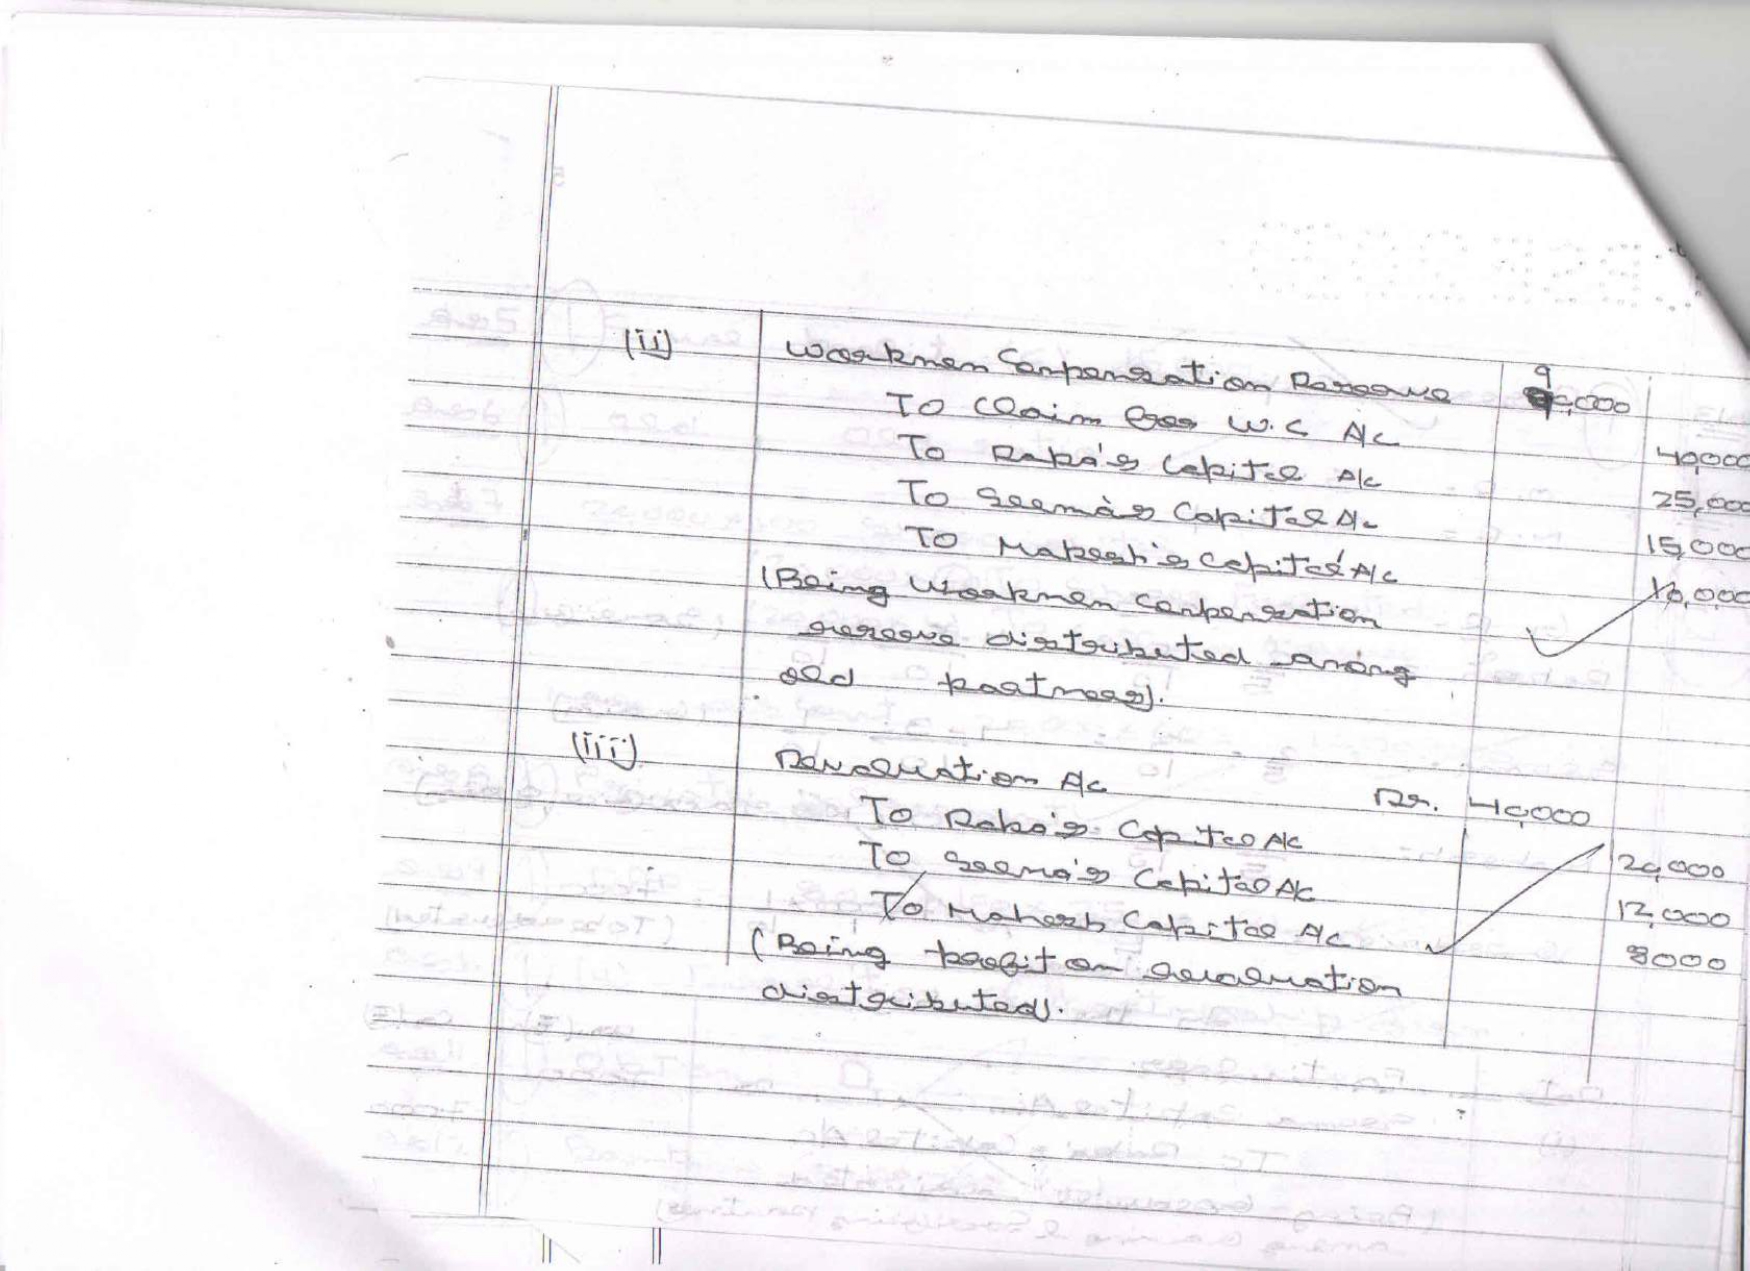 (ii) Workmen Compensation Reserve 90,000
To Claim for W.C A/c 40,000
To Raka's Capital A/c 25,000
To Seema's Capital A/c 15,000
To Mahesh's Capital A/c 10,000
(Being Workmen Compensation
reserve distributed among
old partners).
(iii) Revaluation A/c Dr. 40,000
To Raka's Capital A/c 20,000
To Seema's Capital A/c 12,000
To Mahesh Capital A/c 8000
(Being profit on revaluation
distributed).